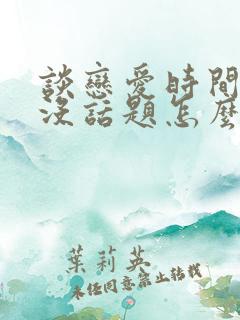 談戀愛時間
沒話題怎麼
葉莉英
未经同意禁止转载